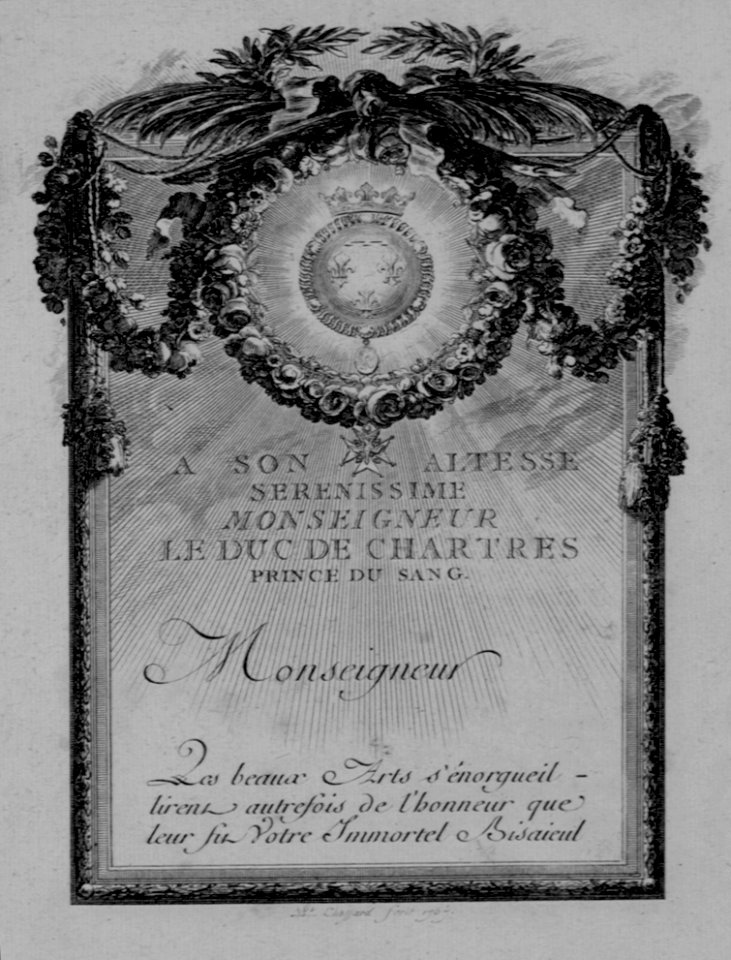 A SON ALTESSE
SERENISSIME
MONSEIGNEUR
LE DUC DE CHARTRES
PRINCE DU SANG.
Monseigneur
Les beaux Arts s'énorgueil-
lirent autrefois de l'honneur que
leur fit Votre Immortel Bisaieul